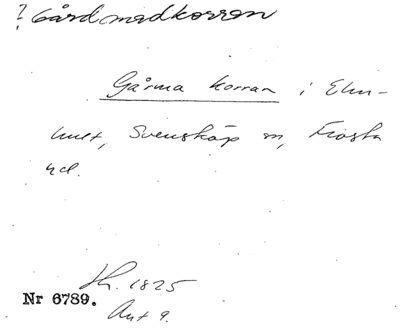 ? Gårdmadkorren
Gårma korran i Elm-
hult, Svensköp sn, Frosta
hd.
Kh. 1825
Nr 6789.
Akt 9.